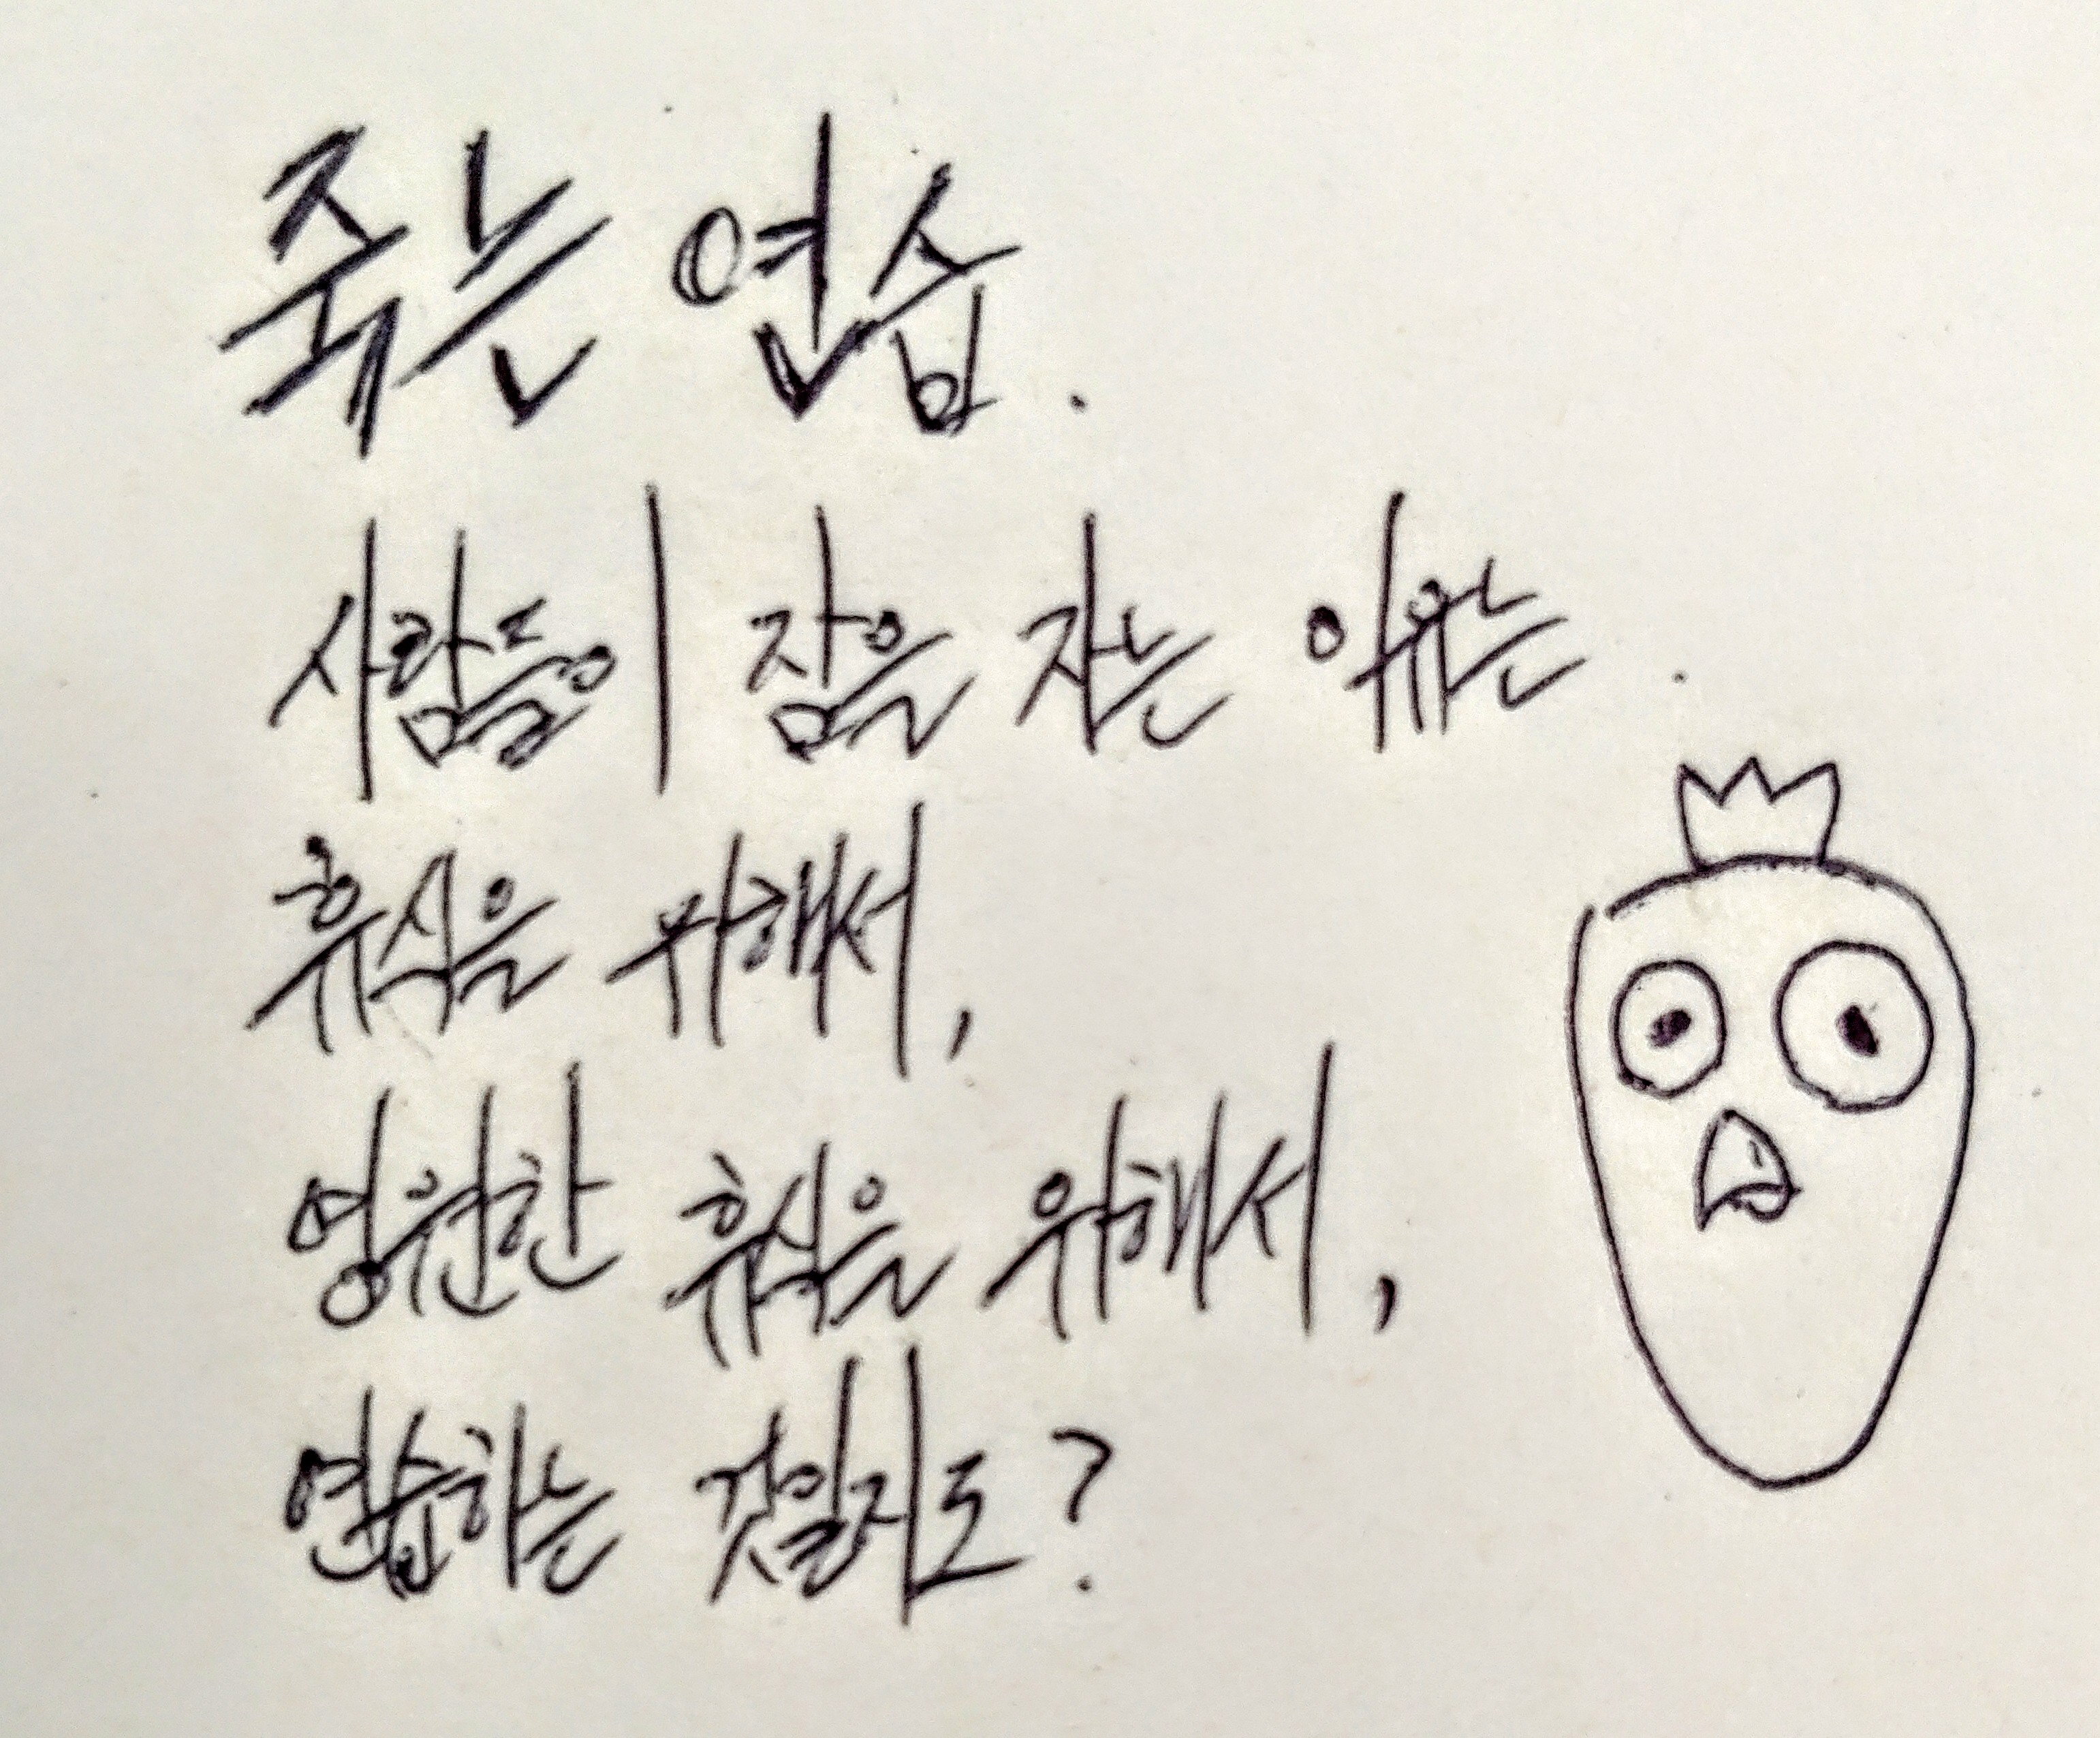 죽는 연습.
사람들이 잠을 자는 이유는.
휴식을 위해서,
영원한 휴식을 위해서,
연습하는 것일지도?